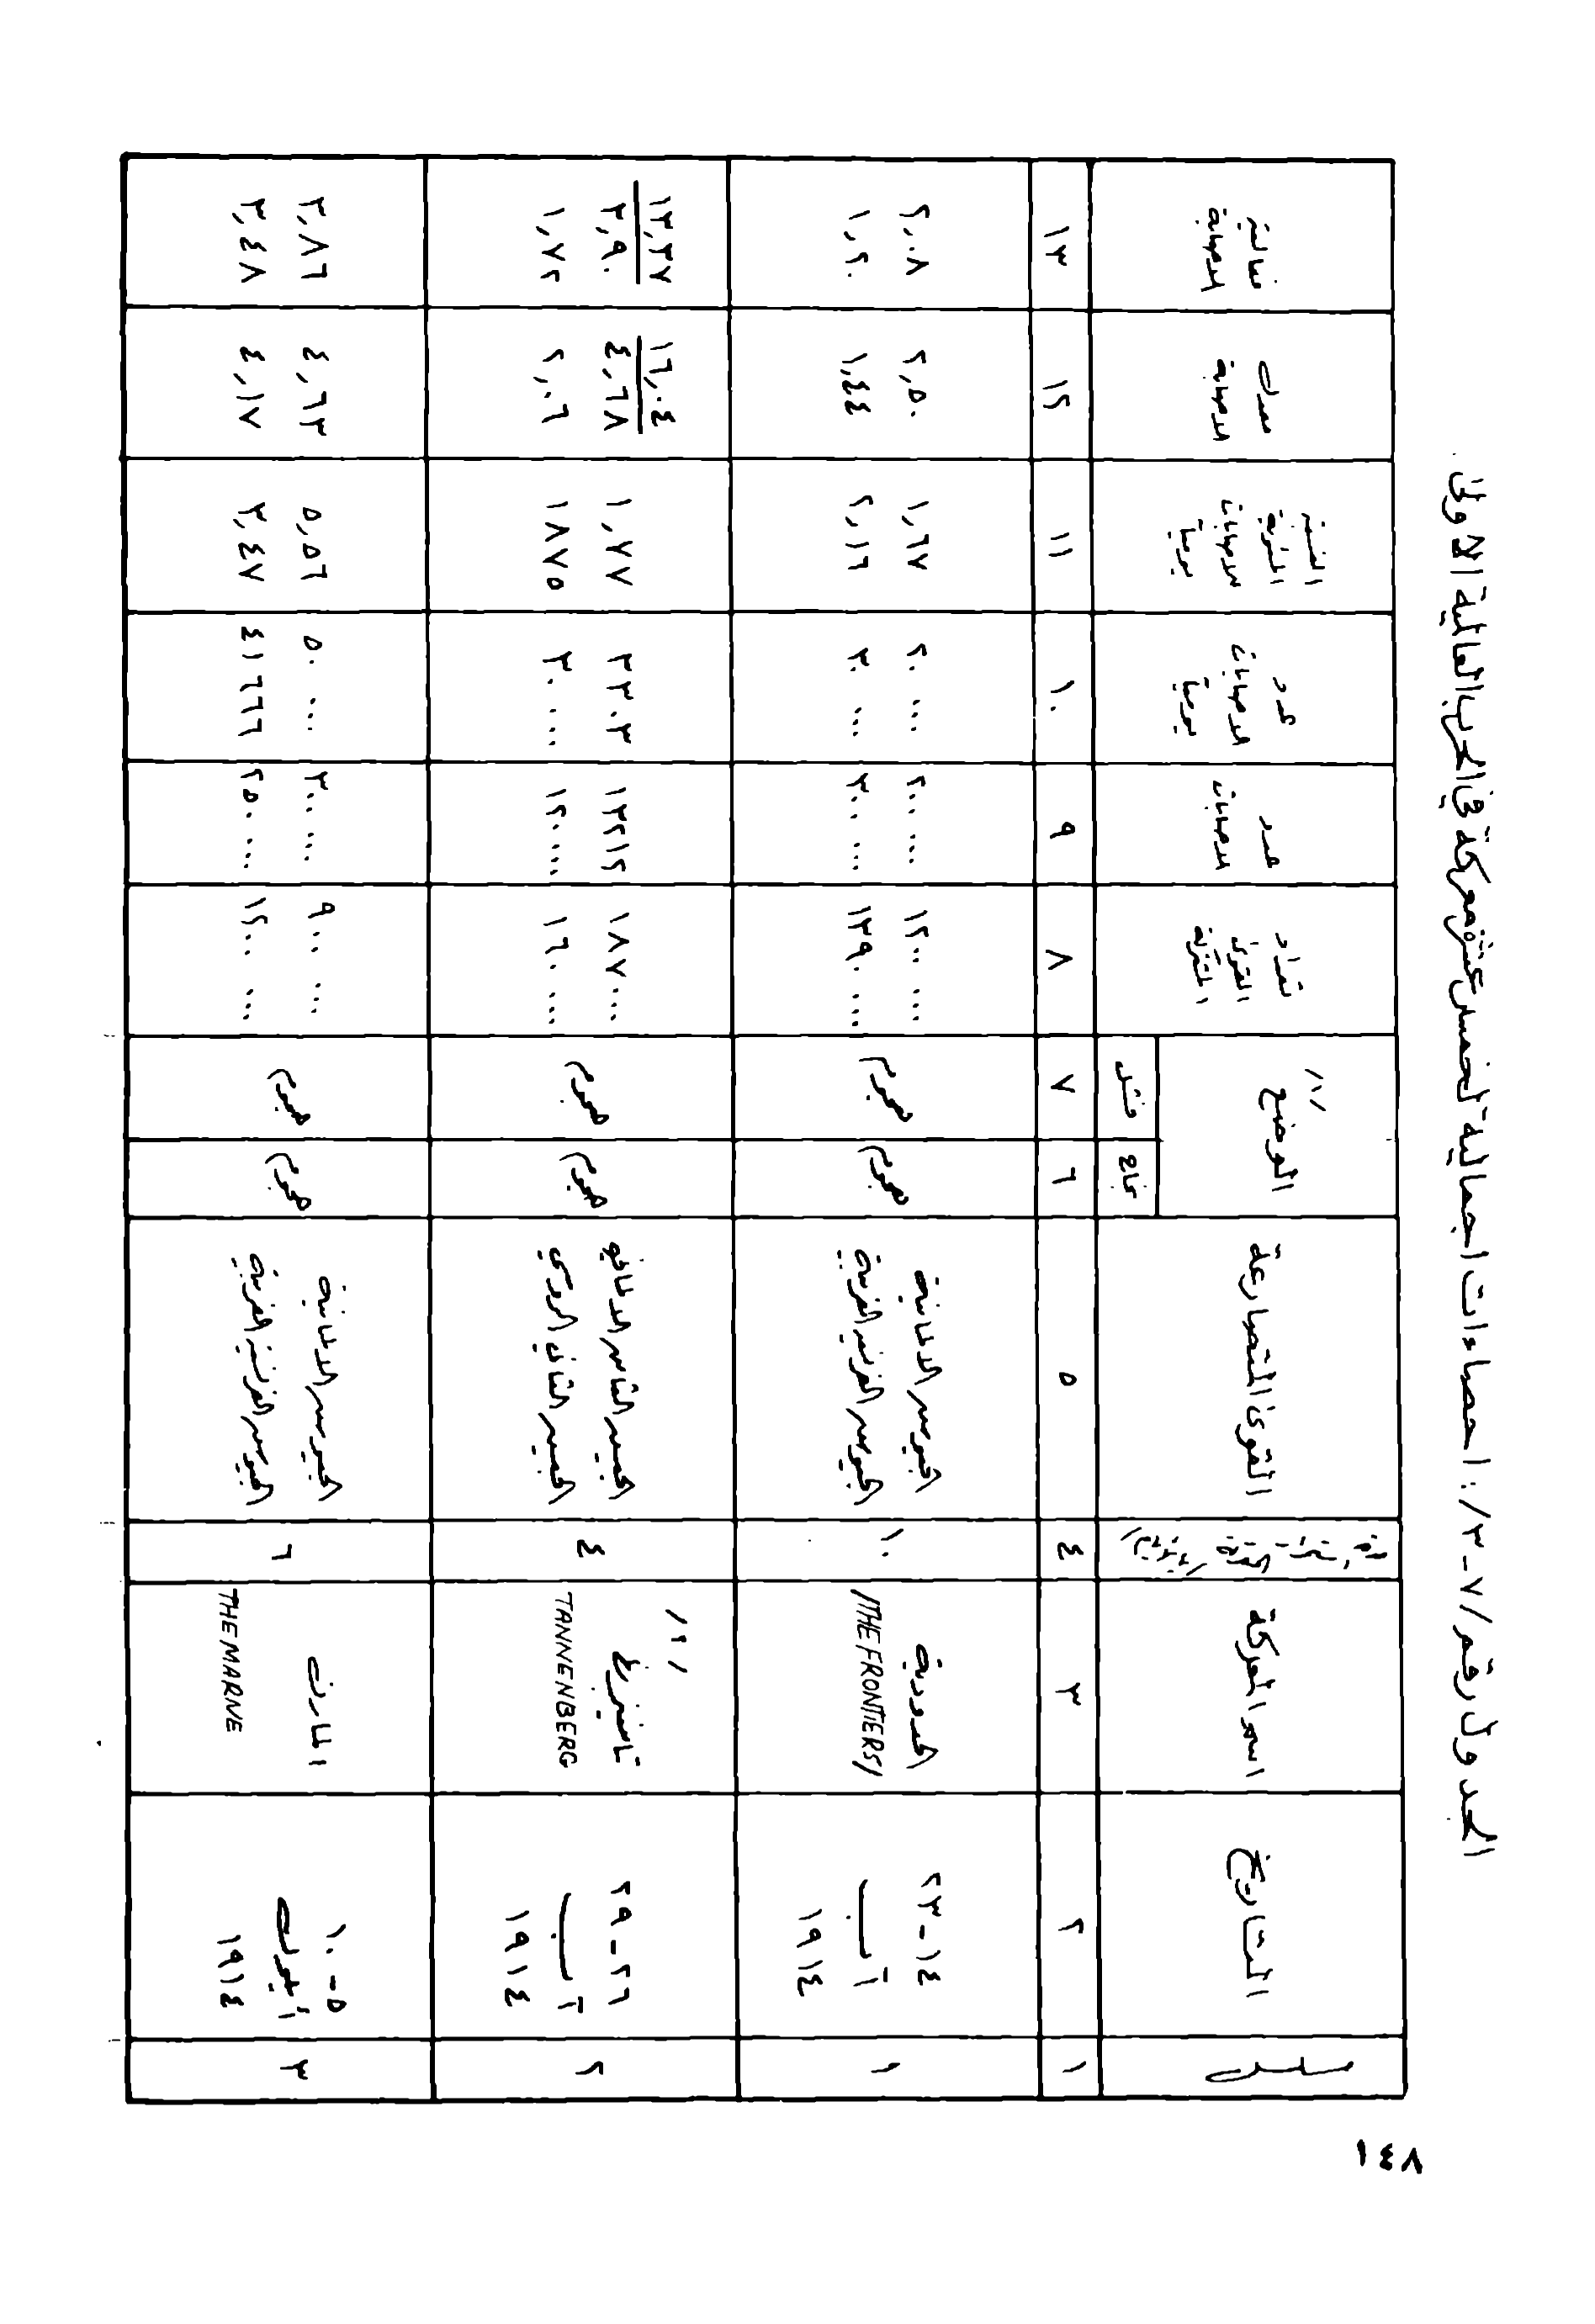 الجدول رقم /٧-٣/: احصاءات اجمالية لخمس عشرة معركة في الحرب العالمية الاولى.
مسلسل
التاريخ
اسم المعركة
القوى المتصارعة
/١/
الوضع
نجاح
فشل
تعداد
القوى
المشتركة
عدد
الاصابات
عدد
الاصابات
يومياً
النسبة
المئوية
للاصابات
يومياً
معدل
الاصابة
فعالية
الاصابة
١ ٢ ٣ ٤ ٥ ٦ ٧ ٨ ٩ ١٠ ١١ ١٢ ١٣
١
١٤-٢٣
آب
١٩١٤
الحدودية
/THE FRONTIERS/
١٠
الجيوش الالمانية
الجيوش الفرنسية الغربية
هجوم
هجوم
١٢٠٠ ٠٠٠
١٣٩٠ ٠٠٠
٢٠٠ ٠٠٠
٣٠٠ ٠٠٠
٢٠ ٠٠٠
٣٠ ٠٠٠
١,٦٧
٢,١٦
٢,٥٠
١,٤٤
٢,٠٨
١,٢٠
٢
٢٦-٢٩
آب
١٩١٤
/٢/
تاننبرغ
TANNENBERG
٤
الجيش الثامن الالماني
الجيش الثاني الروسي
هجوم
هجوم
١٨٧٠٠٠
١٦٠ ٠٠٠
١٣٢١٢
١٢٠٠٠٠
٣٣٠٣
٣٠٠٠٠
١,٧٧
١٨٧٥
١٦,٠٤
٤,٦٨
٢,٠٦
١٣,٣٧
٣,٩٠
١,٧٢
٣
٥-١٠
أيلول
١٩١٤
المارن
THE MARNE
٦
الجيوش الالمانية
الجيوش الفرنسية الغربية
هجوم
هجوم
٩٠٠ ٠٠٠
١٢٠٠ ٠٠٠
٣٠٠ ٠٠٠
٢٥٠ ٠٠٠
٥٠ ٠٠٠
٤١٦٦٦
٥,٥٦
٣,٤٧
٤,٦٣
٤,١٧
٣,٨٦
٣,٤٨
١٤٨